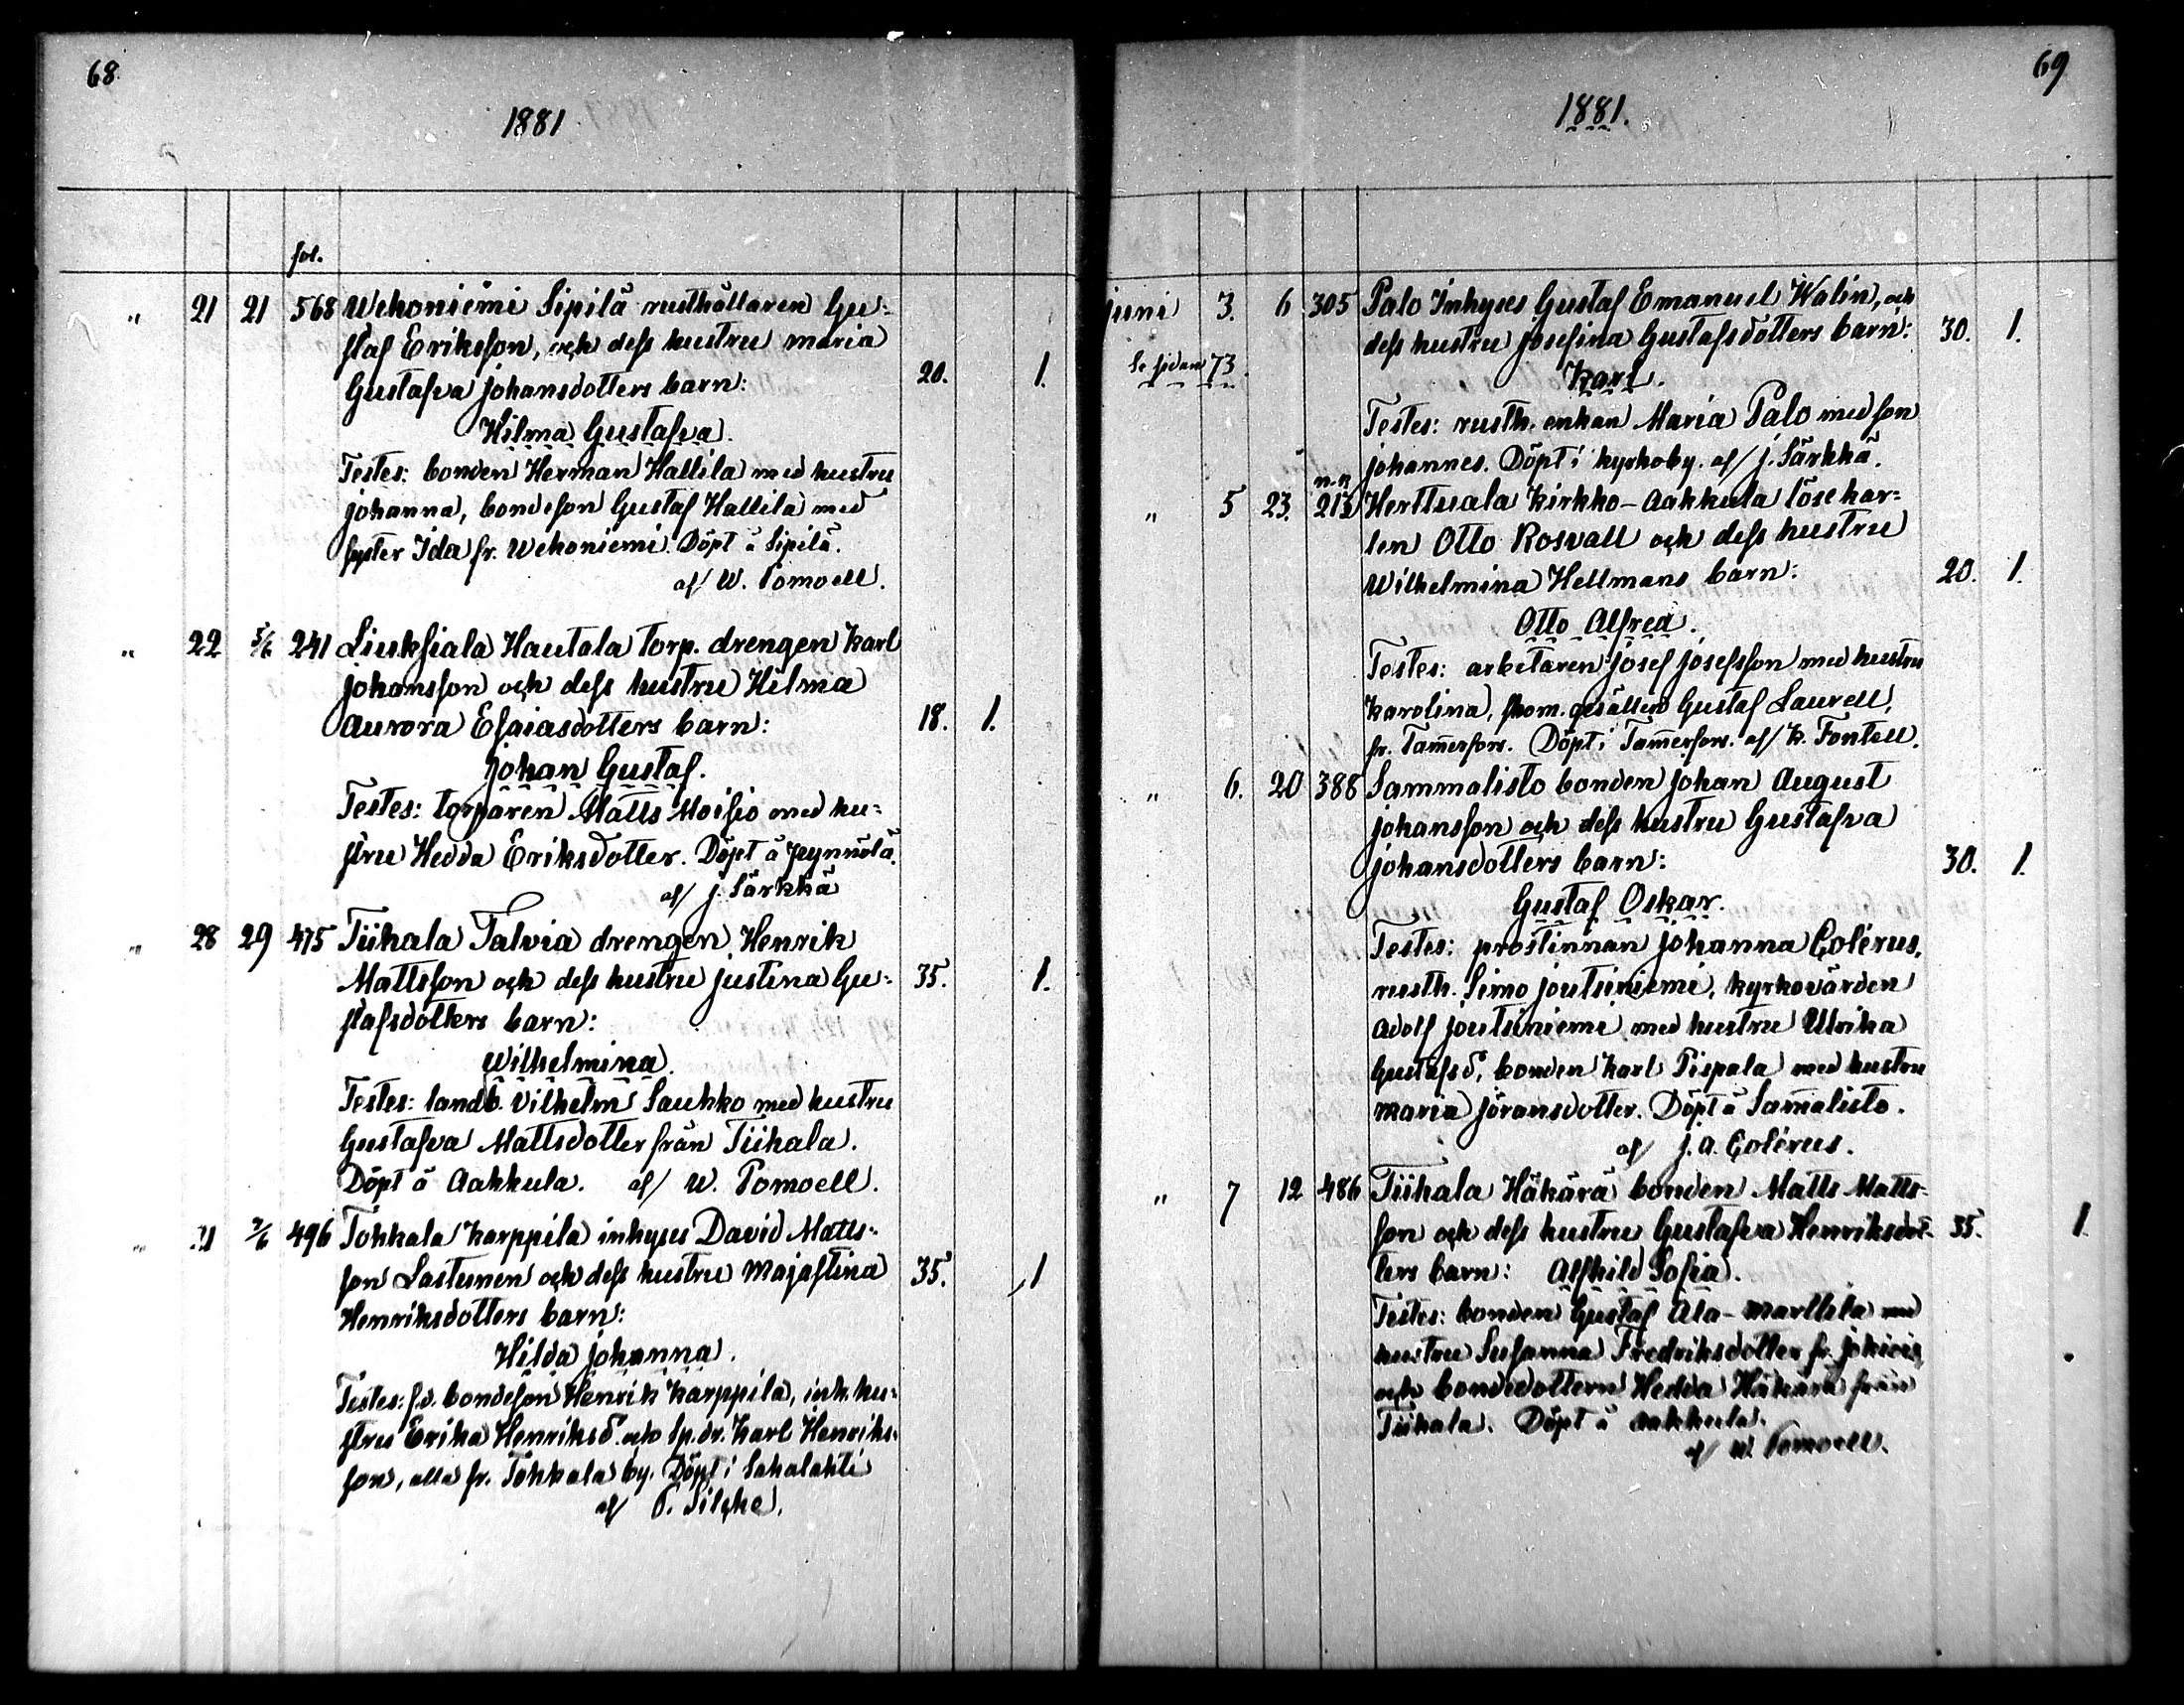 68
1881
fol.
" 21 21 568 Wehoniemi Sipilä rusthållaren Gu=
staf Eriksson, och dess hustru Maria
Gustafva Johansdotters barn: 20. 1.
Hilma Gustafva.
Testes: bonden Herman Hallila med hustru
Johanna, bondeson Gustaf Hallila med
syster Ida fr. Wehoniemi. Döpt å Sipilä.
af W. Pomoell.
" 22 5/6 241 Liuksiala Hautala torp. drengen Karl
Johansson och dess hustru Hilma
Aurora Esaiasdotters barn: 18. 1.
Johan Gustaf.
Testes: torparen Matts Moisio med hu=
stru Hedda Eriksdotter. Döpt å Pynnölä.
af J. Särkkä
" 28 29 475 Tiihala Talvia drengen Henrik
Mattsson och dess hustru Justina Gu= 35. 1.
stafsdotters barn:
Wilhelmina.
Testes: landb. Vilhelm Saukko med hustru
Gustafva Mattsdotter från Tiihala.
Döpt å Aakkula. af W. Pomoell.
" 31 7/6 496 Tohkala Karppila inhyses David Matts=
son Lastunen och dess hustru Majastina 35. 1
Henriksdotters barn:
Hilda Johanna.
Testes: f.d. bondeson Henrik Karppila, inh. hu=
stru Erika Henriksd. och sp.dr. Karl Henriks=
son, alla fr. Tohkala by. Döpt i Sahalahti
af
69
1881.
Juni 3. 6 305 Palo Inhyses Gustaf Emanuel Walin, och
dess hustru Josefina Gustafsdotters barn: 30. 1.
Se sidan 73. Karl.
Testes: rusth. enkan Maria Palo med son
Johannes. Döpt i kyrkoby. af J. Särkkä.
n.n
" 5 23. 213 Herttuala Kirkko-Aakkula lösekar=
len Otto Rosvall och dess hustru
Wilhelmina Hellmans barn: 20. 1.
Otto Alfred.
Testes: arbetaren Josef Josefsson med hustru
Karolina, skom. gesällen Gustaf Laurell,
fr. Tammerfors. Döpt i Tammerfors. af K. Fontell.
" 6. 20 388 Sammalisto bonden Johan August
Johansson och dess hustru Gustafva
Johansdotters barn: 30. 1.
Gustaf Oskar.
Testes: prostinnan Johanna Colérus,
rusth. Simo Joutsiniemi, kyrkovärden
Adolf Joutsiniemi med hustru Ulrika
Gustafsd, bonden Karl Pispala med hustru
Maria Jöransdotter. Döpt å Sammalisto.
af J. A. Colérus.
" 7 12 486 Tiihala Häkärä bonden Matts Matts-
son och dess hustru Gustafva Henriksdot- 35. 1.
ters barn: Alfhild Sofia.
Testes: bonden Gustaf Ala-Marttila med
hustru Susanna Fredriksdotter fr.
och bondedottern Hedda Häkärä från
Tiihala. Döpt å Aakkula.
af W. Pomoell.